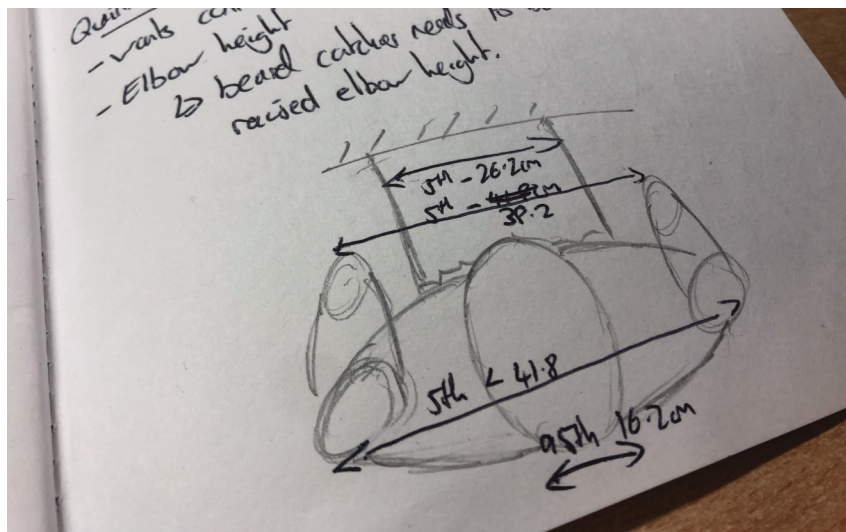 - wants
- Elbow height
↳ beard catcher needs to
raised elbow height.
5th - 26.2cm
5th - cm
38.2
5th < 41.8
95th 16.2cm